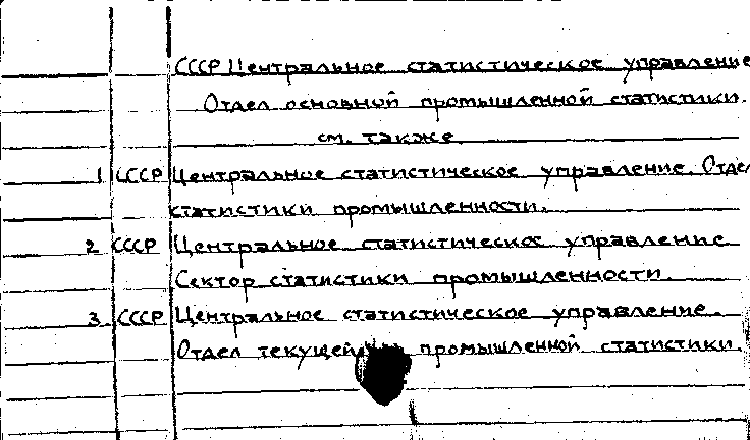 СССР Центральное статистическое управление
Отдел основной промышленной статистики.
см. также
1 СССР Центральное статистическое управление. Отдел
статистики промышленности.
2 СССР Центральное статистическое управление
Сектор статистики промышленности.
3. СССР Центральное статистическое управление.
Отдел текущей промышленной статистики.